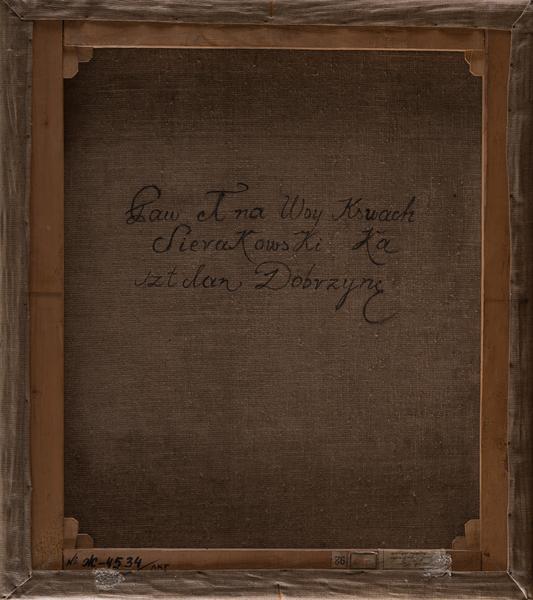 Paw A na Woy Kswach
Sierakowski Ka
sztelan Dobrzynę
№ Ж-4534/АКТ
86